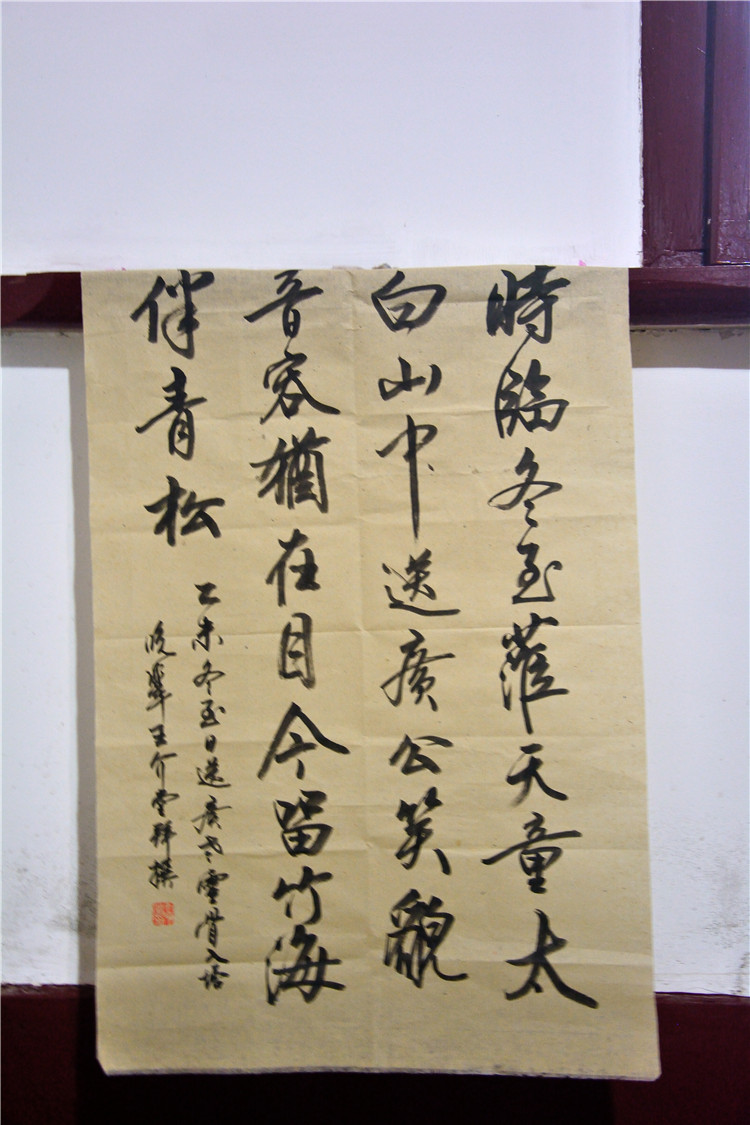 時臨冬至蒞天童太
白山中送廣公笑貌
音容猶在目今留竹海
伴青松
乙未冬至日送廣老靈骨入塔
晚輩王介堂拜撰